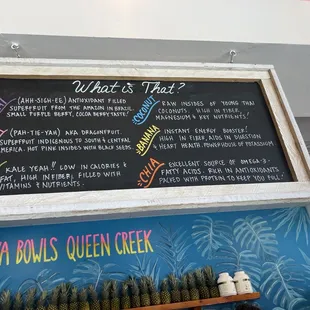 What is That?
(AHH-SIGH-EE) ANTIOXIDANT FILLED
SUPERFRUIT FROM THE AMAZON IN BRASIL.
SMALL PURPLE BERRY, COCOA BERRY TASTE.
(PAH-TIE-YAH) AKA DRAGONFRUIT.
SUPERFRUIT INDIGENOUS TO SOUTH & CENTRAL
AMERICA. HOT PINK INSIDES WITH BLACK SEEDS.
KALE YEAH!! LOW IN CALORIES &
FAT, HIGH IN FIBER, FILLED WITH
VITAMINS & NUTRIENTS.
COCONUT
RAW INSIDES OF YOUNG THAI
COCONUTS. HIGH IN FIBER,
MAGNESIUM & KEY NUTRIENTS!
BANANA
INSTANT ENERGY BOOSTER!
HIGH IN FIBER, AIDS IN DIGESTION
& HEART HEALTH. POWERHOUSE OF POTASSIUM
CHIA
EXCELLENT SOURCE OF OMEGA-3
FATTY ACIDS. RICH IN ANTIOXIDANTS
PACKED WITH PROTEIN TO KEEP YOU FULL.
BOWLS QUEEN CREEK